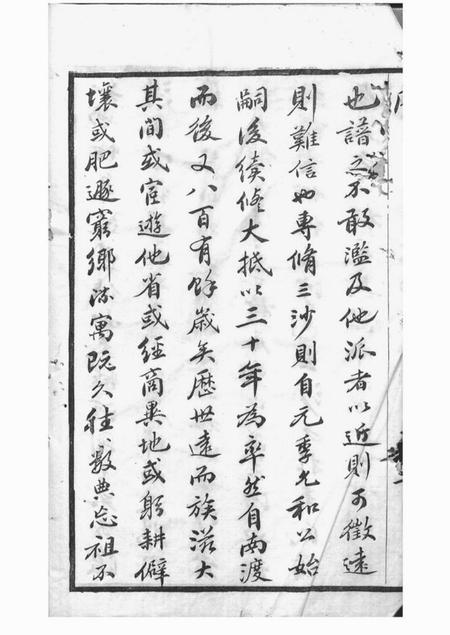 也譜之不敢濫及他派者以近則可徵遠
則難信也專脩三沙則自元季允和公始
嗣後續修大抵以三十年為率然自南渡
而後又八百有餘歲矣歷世遠而族滋大
其間或宦遊他省或經商異地或躬耕僻
壤或肥遯窮鄉流寓既久往〻數典忘祖不